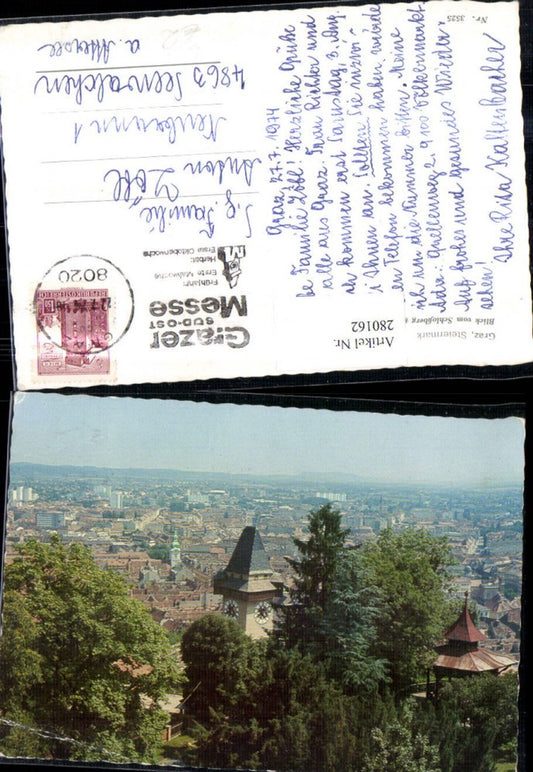 Nr. 3525
Graz, Steiermark
Blick vom Schloßberg
Artikel Nr.
280162
Grazer
SÜD-OST
Messe
Frühjahr:
Erste Maiwoche
Herbst:
Erste Oktoberwoche
8020
REPUBLIK ÖSTERREICH
S. g. Familie
Anton Zötl
4863 Seewalchen
a. Attersee
Graz 27.7.1974
be Familie Zötl! Herzliche Grüße
alle aus Graz. Frau Richter und
kommen erst Samstag, 3. Aug.
Ihnen an. Sollten Sie inzwi-
en Telefon bekommen haben, würde
ich um die Nummer bitten. Meine
Quellenweg 2, 9100 Völkermarkt.
Auf frohes und gesundes Wieder-
sehen!
Ihre Rita Kaltenbacher